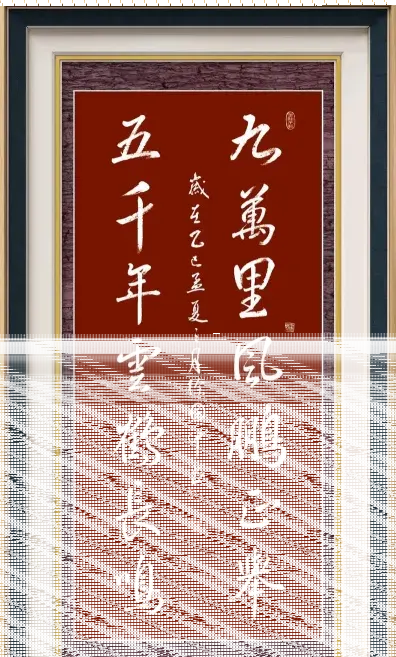 九萬里風鵬正舉
歲在乙巳孟夏之月
五千年雲鶴長鳴